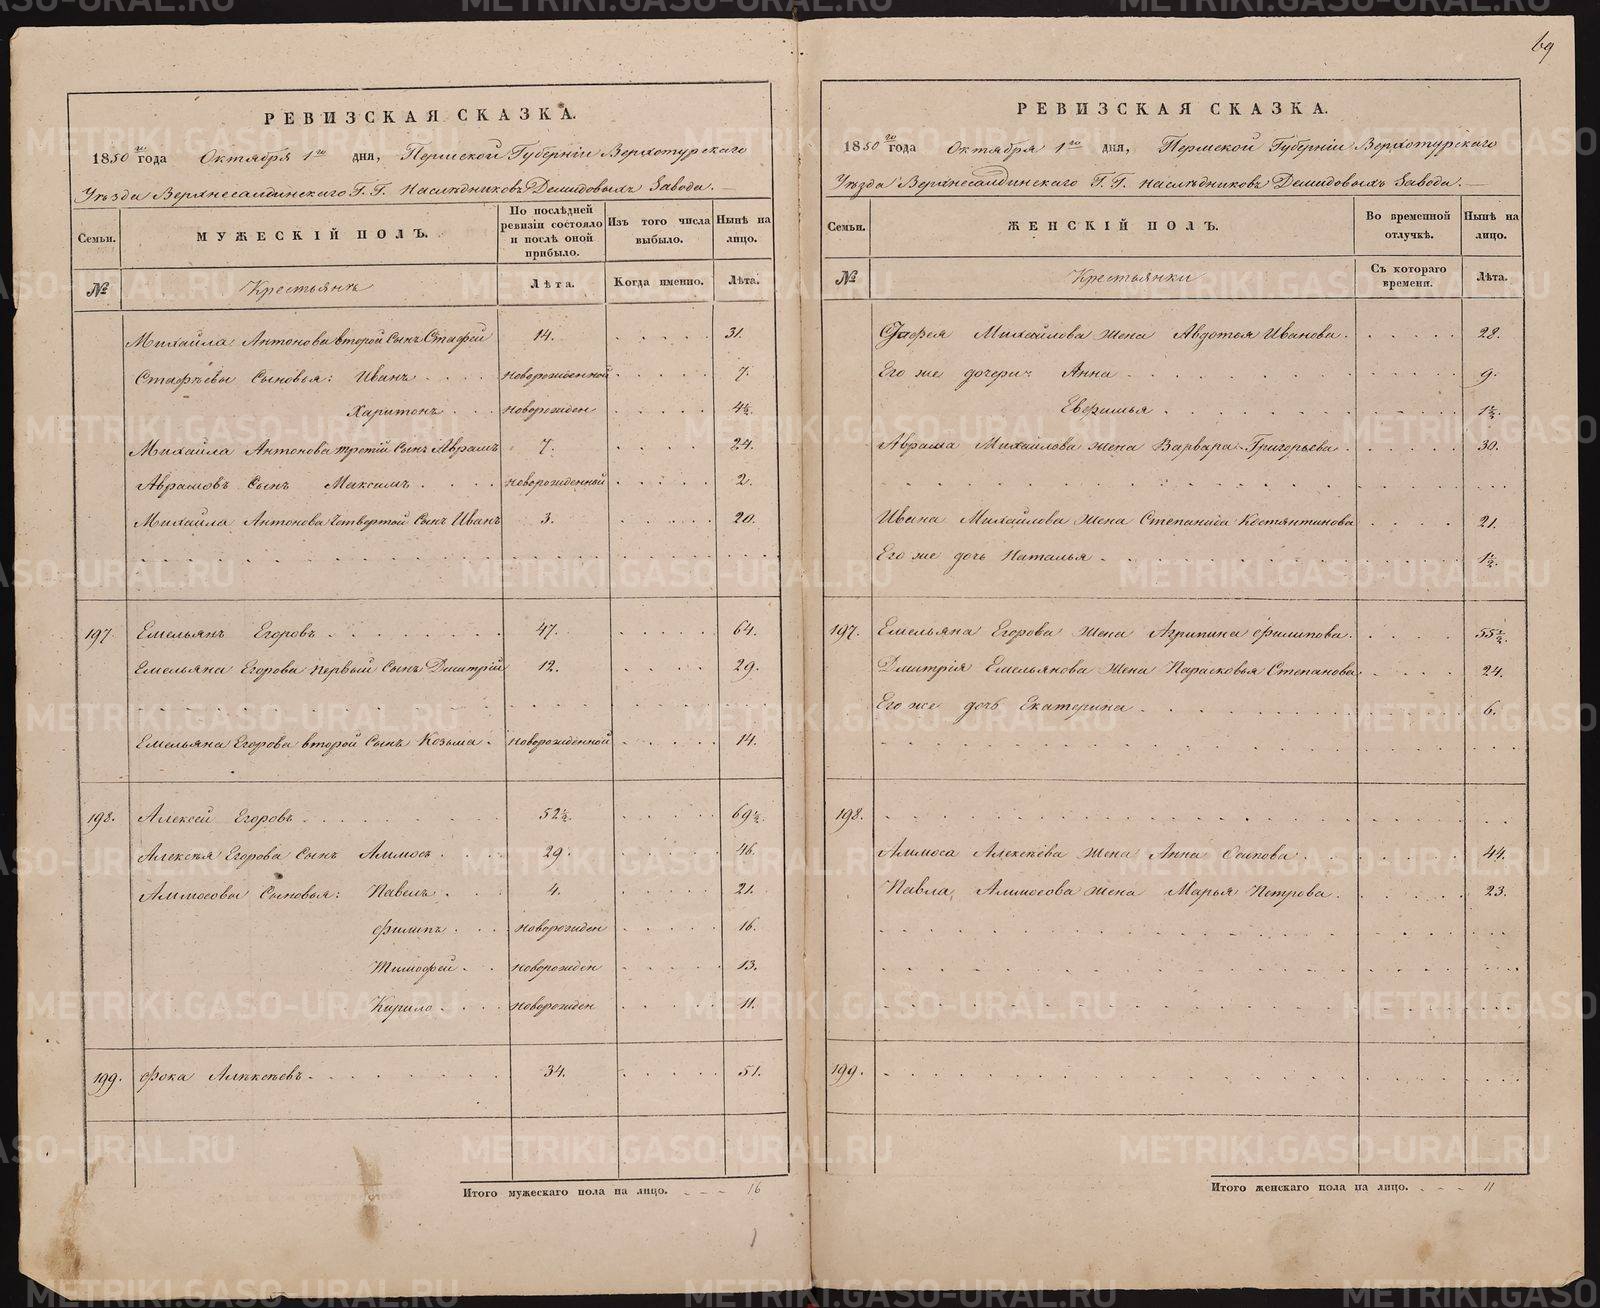 69
РЕВИЗСКАЯ СКАЗКА.
1850го года Октября 1го дня, Пермской Губерніи Верхотурскаго
Уѣзда Верхнесалдинскаго Г. Г. Наслѣдниковъ Демидовыхъ Завода.
Семьи. МУЖЕСКІЙ ПОЛЪ. По послѣдней ревизіи состояло и послѣ оной прибыло. Изъ того числа выбыло. Нынѣ на лицо.
№ Крестьянъ Лѣта. Когда именно. Лѣта.
Михайла Антонова второй сынъ Стафей 14. 31.
Стафѣевы сыновья: Иванъ новорожденной 7.
Харитонъ новорожден 4½.
Михайла Антонова третій сынъ Аврамъ 7. 24.
Аврамовъ сынъ Максимъ новорожденной 2.
Михайла Антонова четвертой сынъ Иванъ 3. 20.
197. Емельянъ Егоровъ 47. 64.
Емельяна Егорова первый сынъ Дмитрій 12. 29.
Емельяна Егорова второй сынъ Козьма новорожденной 14.
198. Алексей Егоровъ 52½. 69½.
Алексѣя Егорова сынъ Аммосъ 29. 46.
Аммосовы сыновья: Павелъ 4. 21.
Филипъ новорожден 16.
Тимофей новорожден 13.
Кирило новорожден 11.
199. Фока Алексѣевъ 34. 51.
Итого мужескаго пола на лицо. 16
РЕВИЗСКАЯ СКАЗКА.
1850го года Октября 1го дня, Пермской Губерніи Верхотурскаго
Уѣзда Верхнесалдинскаго Г. Г. Наслѣдниковъ Демидовыхъ Завода.
Семьи. ЖЕНСКІЙ ПОЛЪ. Во временной отлучкѣ. Нынѣ на лицо.
№ Крестьянки Съ котораго времени. Лѣта.
Стафея Михайлова жена Авдотья Иванова 28.
Его же дочери: Анна 9.
Евфимья 1½.
Аврама Михайлова жена Варвара Григорьева 30.
Ивана Михайлова жена Степанида Костянтинова 21.
Его же дочь Наталья 1½.
197. Емельяна Егорова жена Агрипина Филипова 55½.
Дмитрія Емельянова жена Парасковья Степанова 24.
Его же дочь Екатерина 6.
198.
Аммоса Алексѣева жена Анна Осипова 44.
Павла Аммосова жена Марья Петрова 23.
199.
Итого женскаго пола на лицо. 11
METRIKI.GASO-URAL.RU